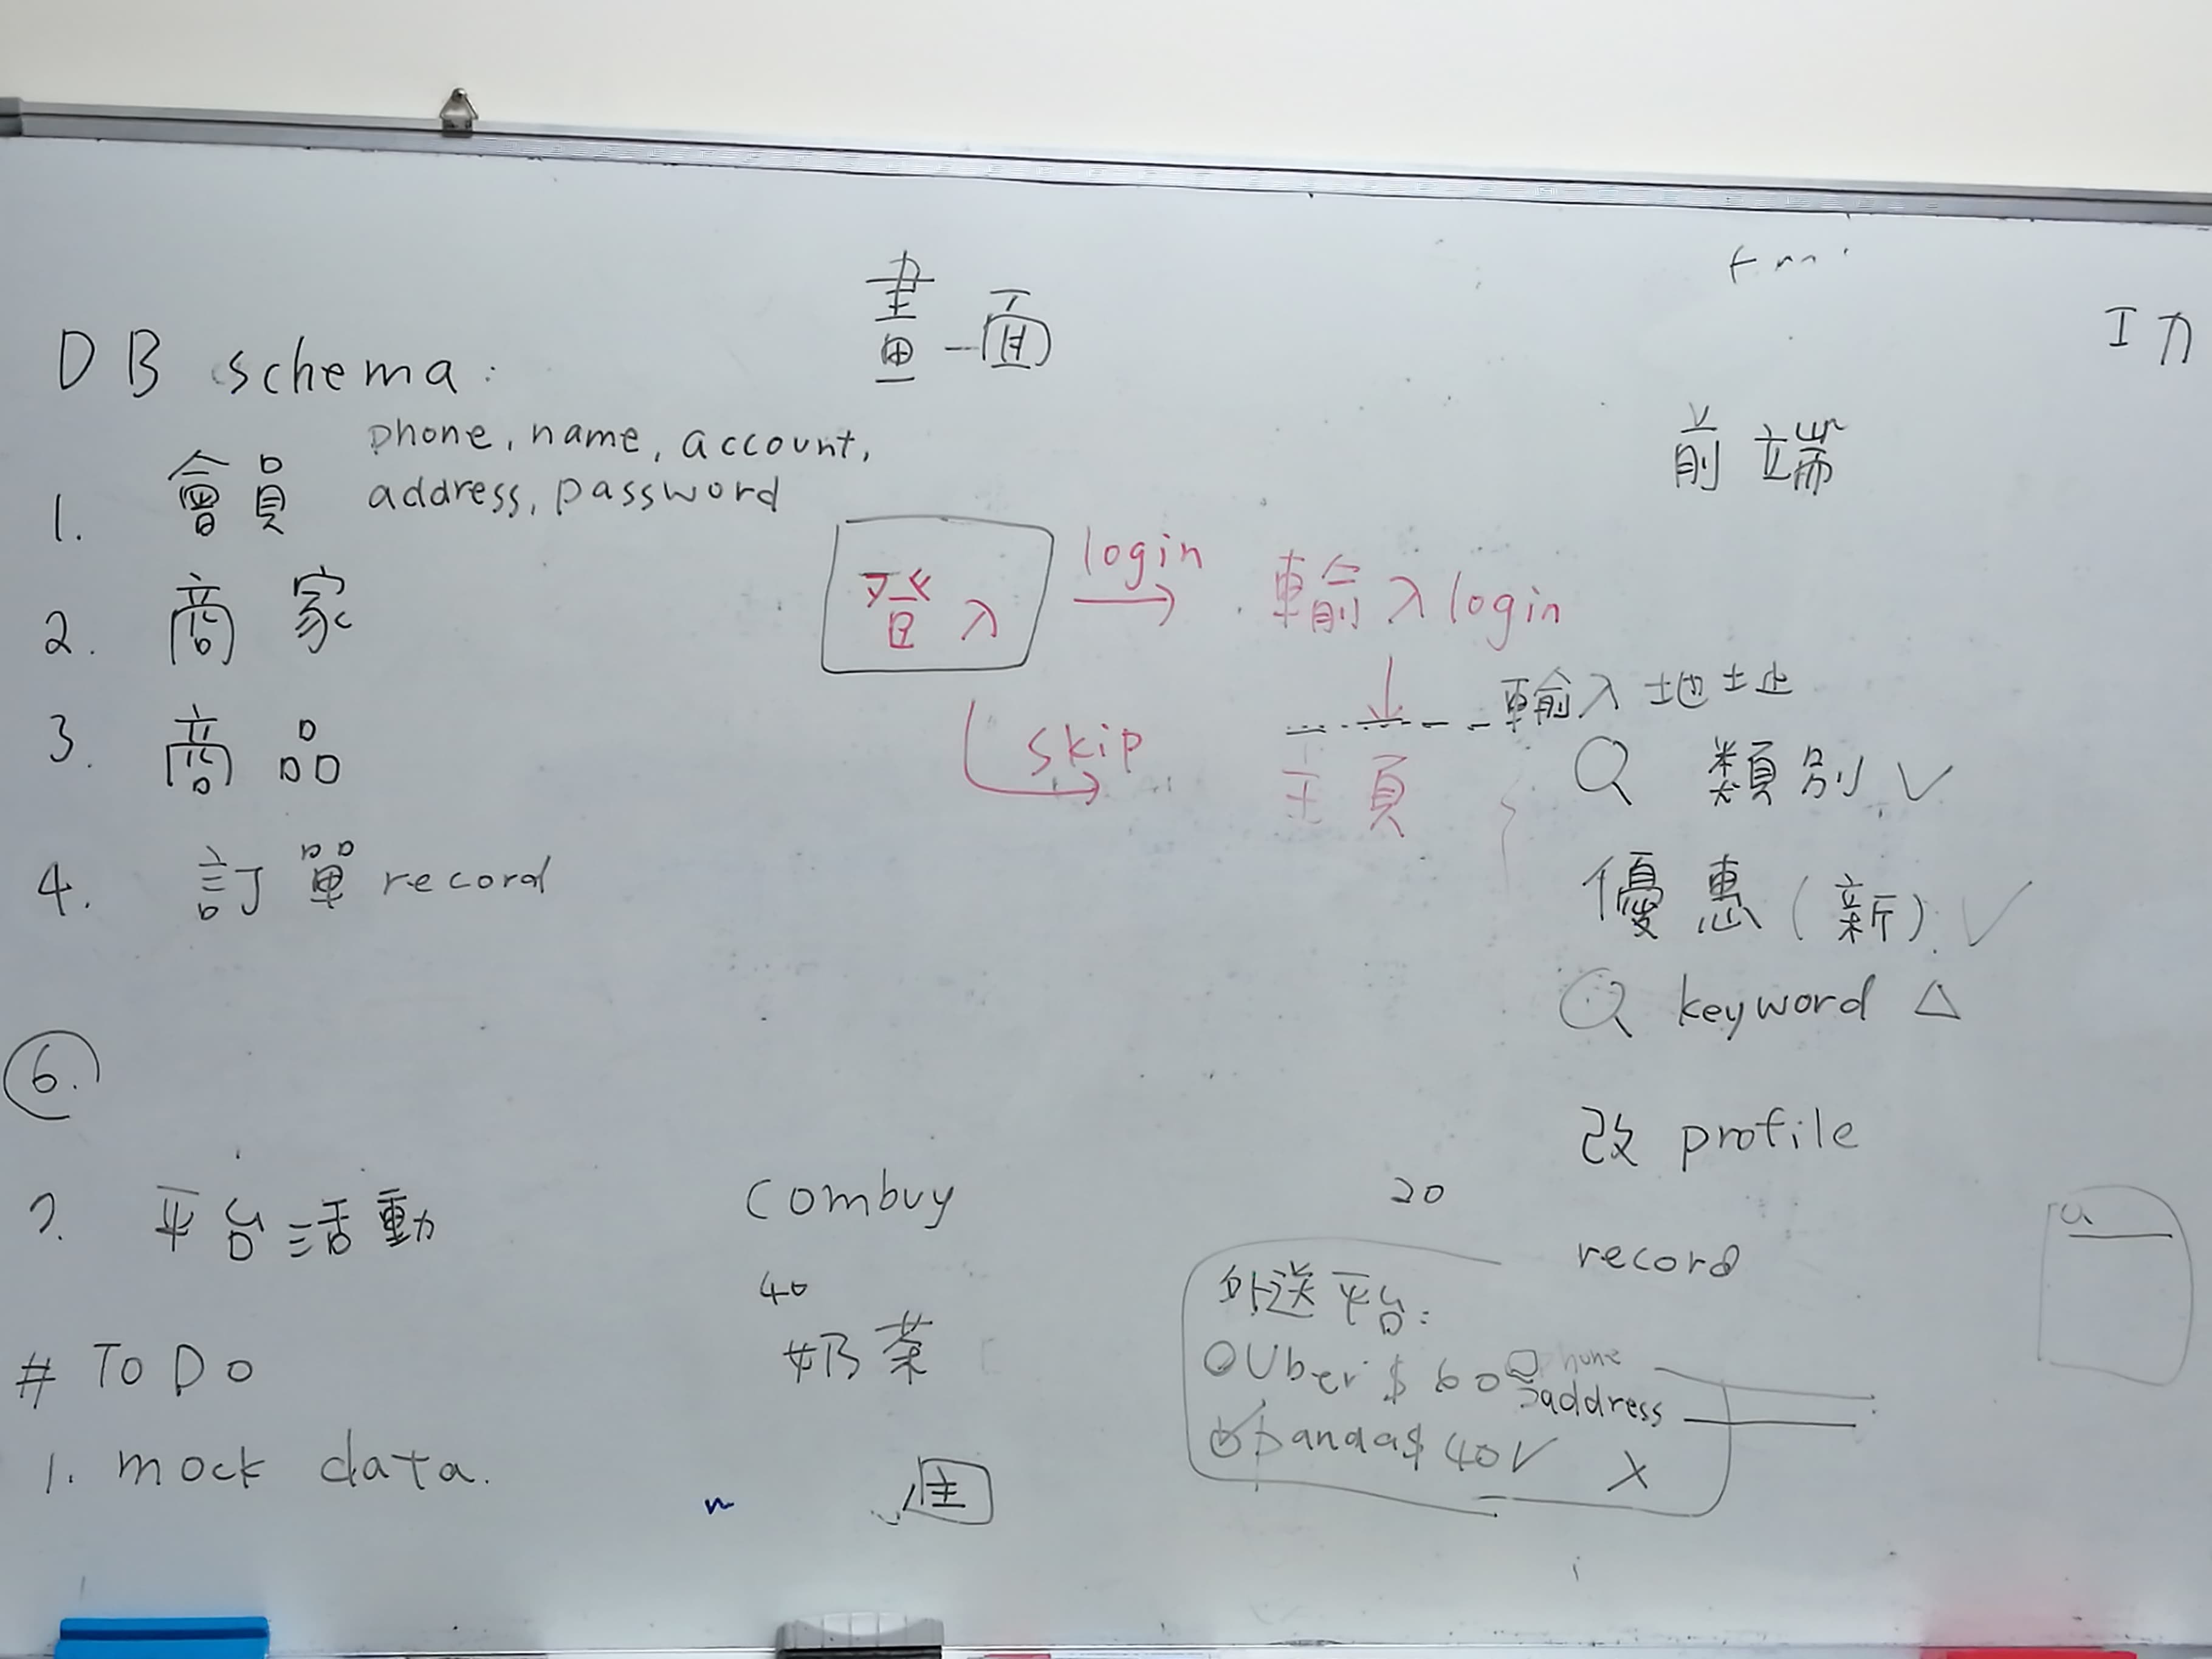 DB schema:
1. 會員 phone, name, account,
address, password
2. 商家
3. 商品
4. 訂單 record
6.
7. 平台活動
# To Do
1. mock data.
畫面
登入
login
輸入login
skip
主頁
combuy
40
奶茶
前端
輸入地址
類別 ✓
優惠(新) ✓
keyword △
改 profile
record
20
外送平台:
Uber $60
phone
address
panda $40 ✓ X